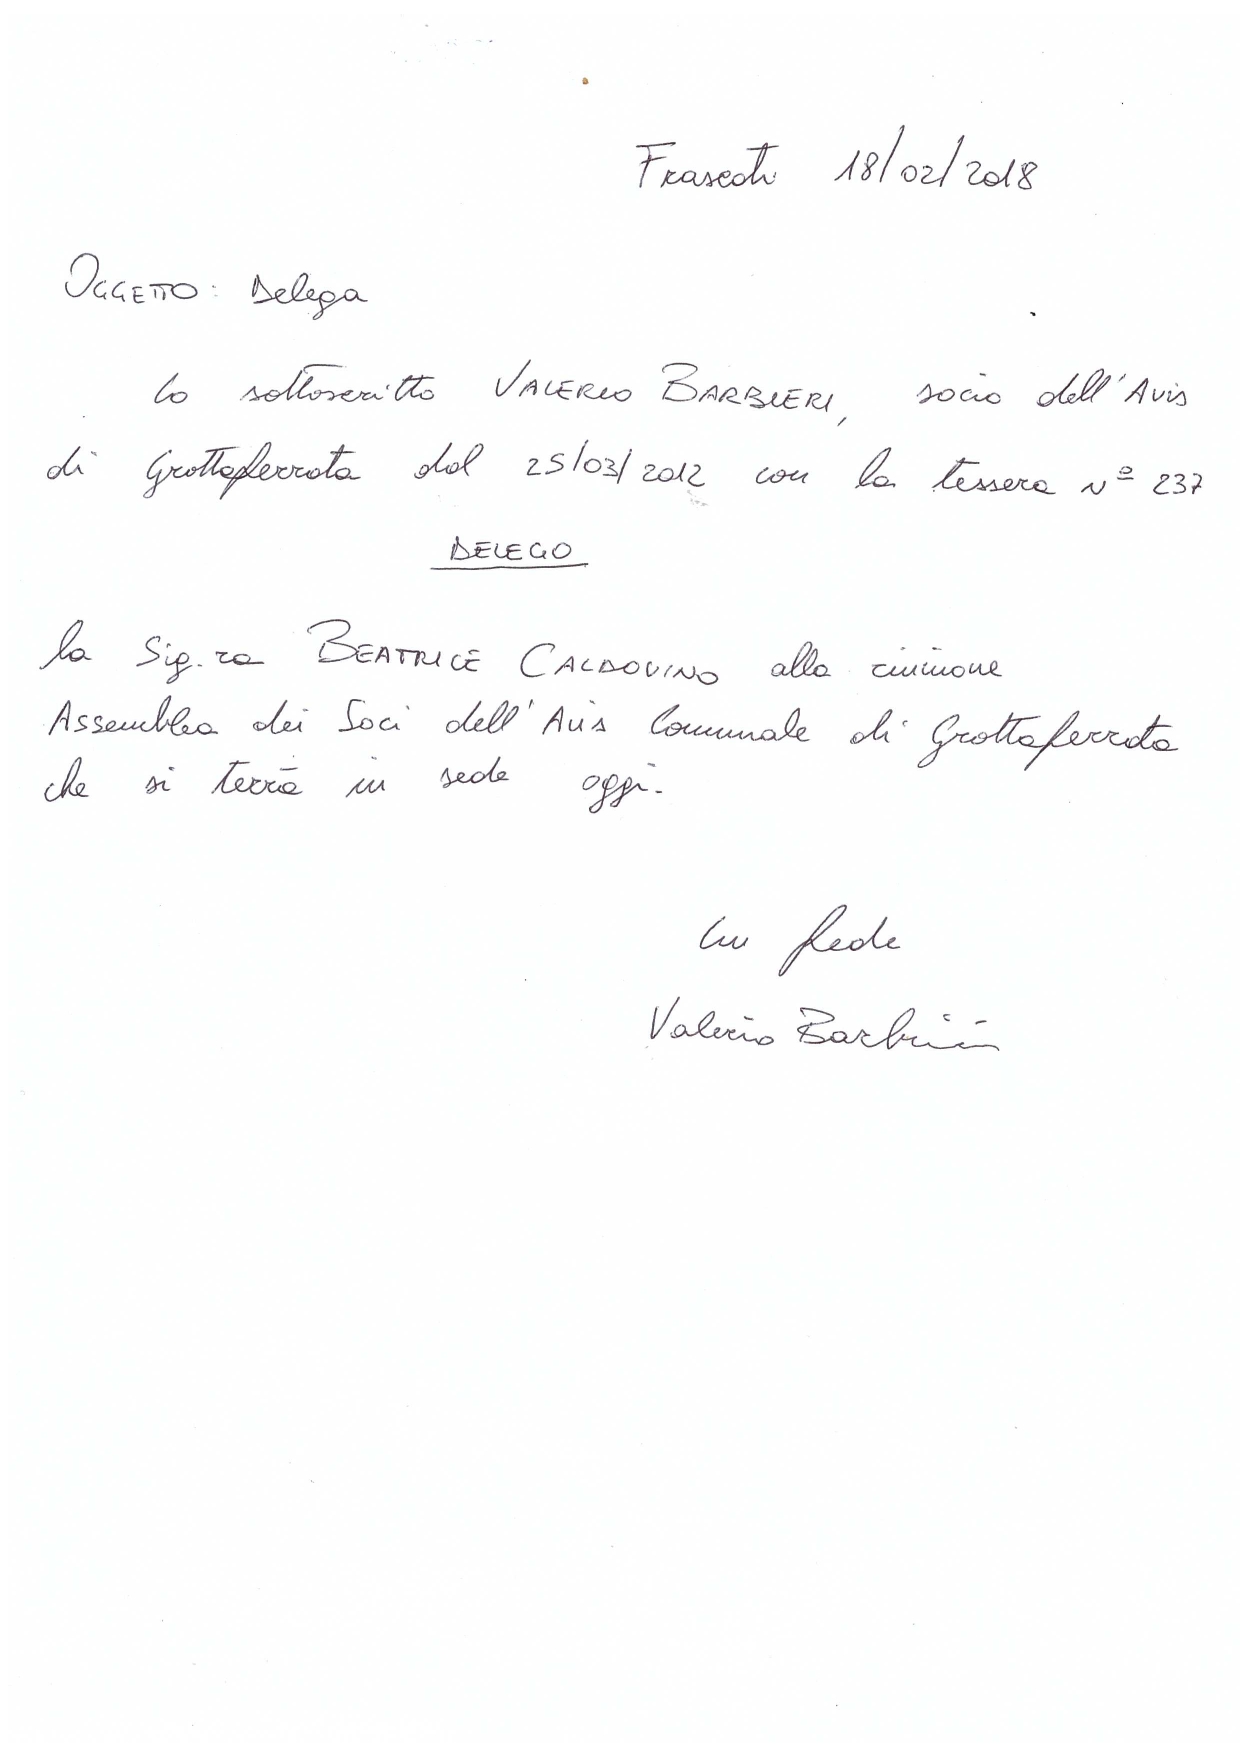 Frascati 18/02/2018
OGGETTO: Delega
Io sottoscritto VALERIO BARBIERI, socio dell'Avis
di Grottaferrata dal 25/03/2012 con la tessera n° 237
DELEGO
la Sig.ra BEATRICE CALDOVINO alla riunione
Assemblea dei Soci dell'Avis Comunale di Grottaferrata
che si terrà in sede oggi.
In fede
Valerio Barbieri